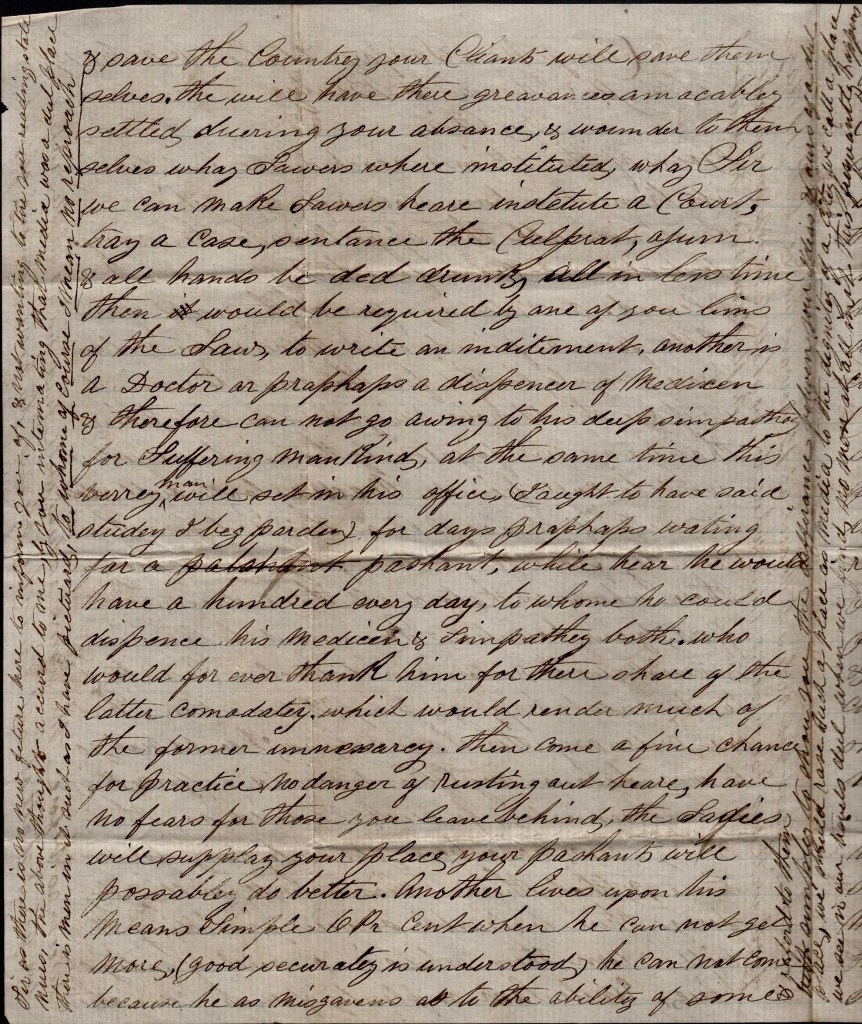 & save the Country your Clients will save them
selves. the will have there greavances amacabley
settled duering your absance, & wounder to them
selves whay Lawers where instituted, whay Sir
we can make Lawers heare institute a Court,
tray a case, sentance the Culprat, ajurn
& all hands be ded drunk, all in less time
then it would be required by one of you lims
of the Law, to write an inditement, another is
a Doctor or praphaps a dispencer of Medicen
& therefore can not go awing to his deep simpathy
for Suffering mankind, at the same time this
verrey man will set in his office, (I aught to have said
studey I beg parden) for days praphaps wating
for a pashant, while hear he would
have a hundred every day, to whome he could
dispence his Medicen & Simpathey both. who
would for ever thank him for there share of the
latter comodatey. which would render much of
the former unnesarcy. then come a fine chance
for practice, no danger of Rusting out heare, have
no fears for those you leave behind, the Ladies
will supplay your place, your pashants will
possabley do better. Another lives upon his
Means Simple 6 Pr Cent when he can not get
More, (good securatey is understood,) he can not come
because he as misgavens as to the ability of some
Sir as there is no new future here to inform you of, & not wanting to
Nurs, the above thought accured to me, by you intermating that Media was a dul place
there is men in it such as I have pictured, to whome of Course I mean no reproach
& relord to them
two samples to show you the differance between your place & ours as a dul
place, we should rase such a place as Media to the dignity of a City, we call a place